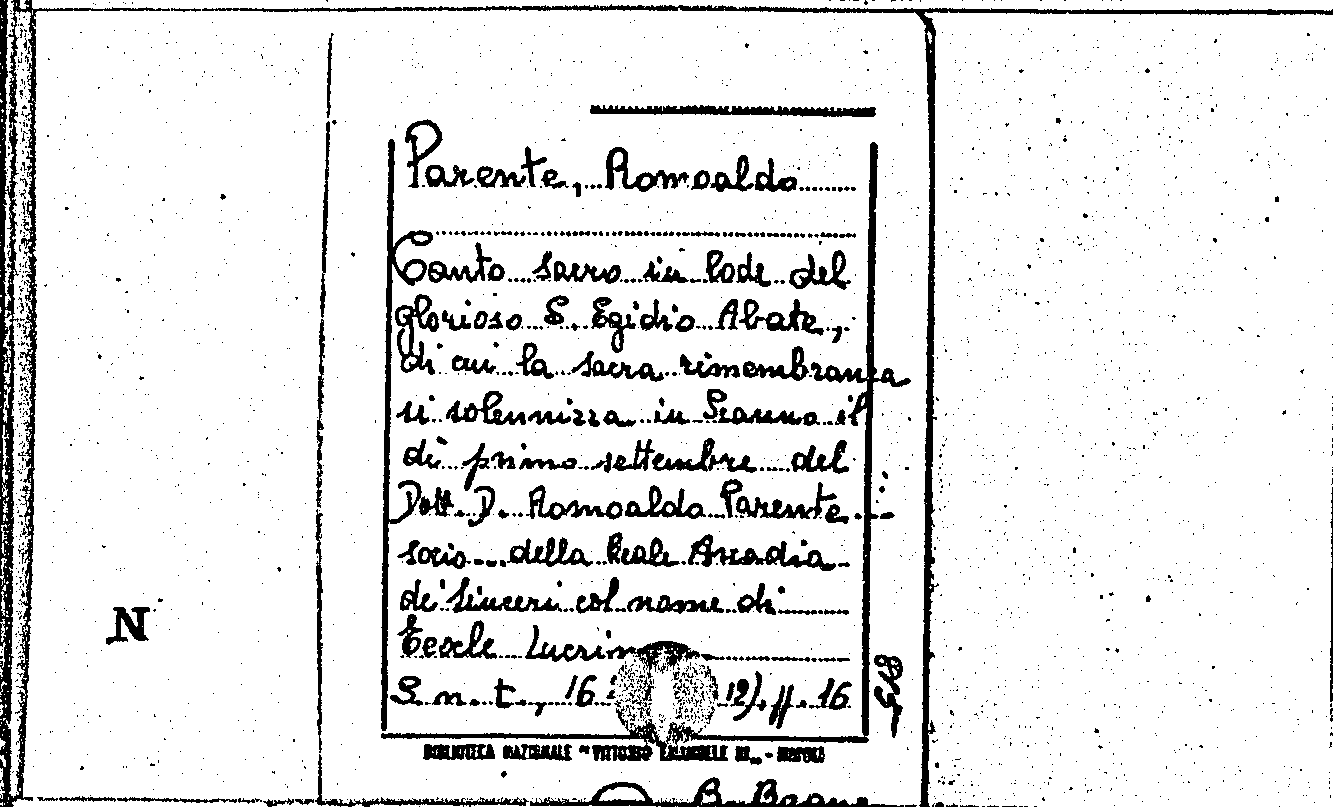 Parente, Romoaldo
Canto sacro in lode del
glorioso S. Egidio Abate,
di cui la sacra rimembranza
si solennizza in Scanno il
dì primo settembre del
Dott. D. Romoaldo Parente
socio... della Reale Arcadia
de' Sinceri col nome di
Teocle
S. n. t., 16 12). ff. 16
BIBLIOTECA NAZIONALE "VITTORIO EMANUELE III" - NAPOLI
N